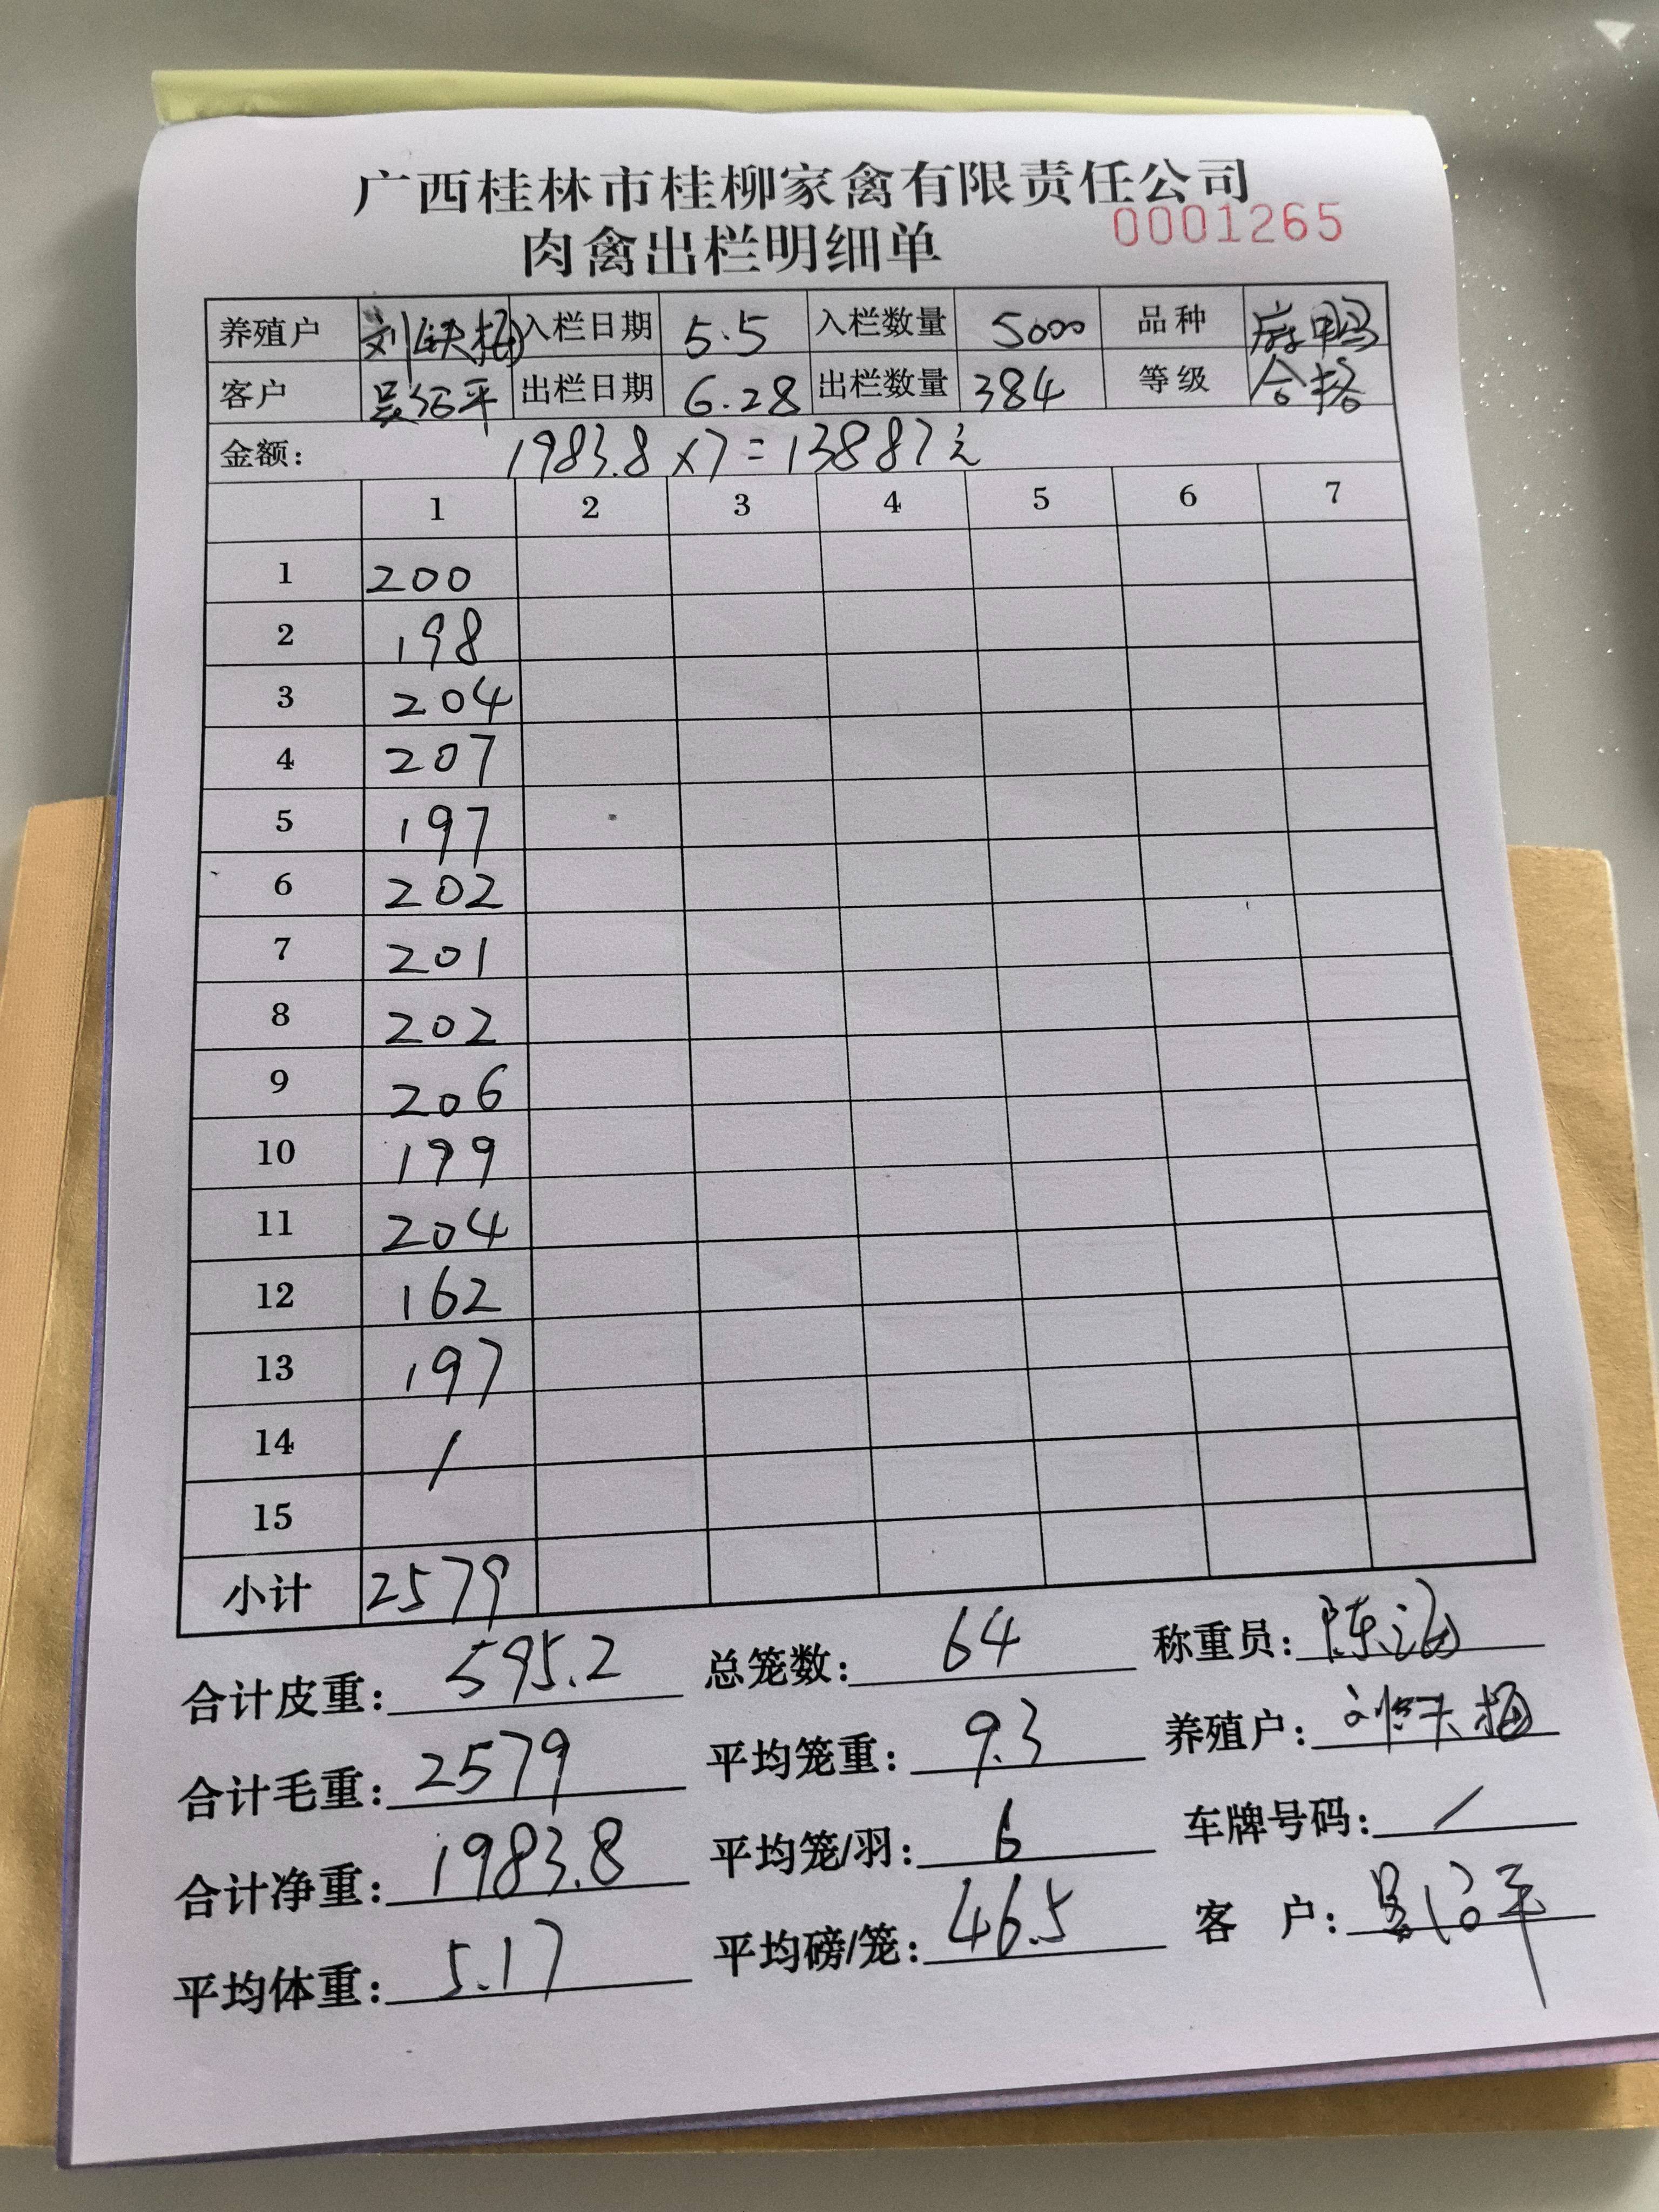 广西桂林市桂柳家禽有限责任公司
肉禽出栏明细单 0001265
养殖户 刘 梅 入栏日期 5.5 入栏数量 5000 品种 麻鸭
客户 吴 平 出栏日期 6.28 出栏数量 384 等级 合格
金额: 1983.8×7=13887元
1 2 3 4 5 6 7
1 200
2 198
3 204
4 207
5 197
6 202
7 201
8 202
9 206
10 199
11 204
12 162
13 197
14 /
15
小计 2579
合计皮重: 595.2 总笼数: 64 称重员: 陈
合计毛重: 2579 平均笼重: 9.3 养殖户: 刘 梅
合计净重: 1983.8 平均笼/羽: 6 车牌号码: /
平均体重: 5.17 平均磅/笼: 46.5 客 户: 吴 平